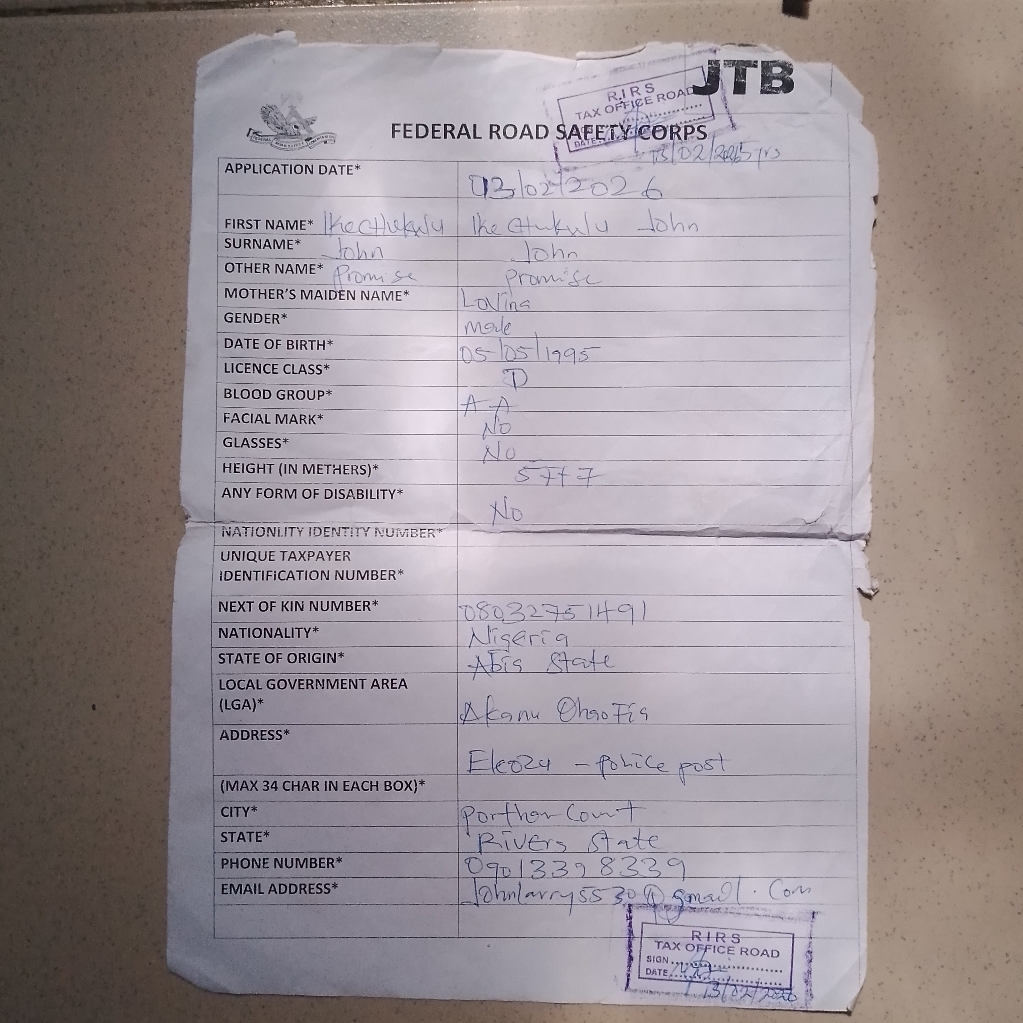 JTB
R.I.R.S
TAX OFFICE ROAD
DATE
FEDERAL ROAD SAFETY CORPS
APPLICATION DATE* 13/02/2026
FIRST NAME* Ikechukwu Ikechukwu John
SURNAME* John John
OTHER NAME* Promise Promise
MOTHER'S MAIDEN NAME* Lovina
GENDER* male
DATE OF BIRTH* 05/05/1995
LICENCE CLASS* D
BLOOD GROUP* A A
FACIAL MARK* No
GLASSES* No
HEIGHT (IN METHERS)*
ANY FORM OF DISABILITY* No
NATIONLITY IDENTITY NUMBER*
UNIQUE TAXPAYER
IDENTIFICATION NUMBER*
NEXT OF KIN NUMBER* 08032751491
NATIONALITY* Nigeria
STATE OF ORIGIN* Abia State
LOCAL GOVERNMENT AREA
(LGA)* Akanu Ohaofia
ADDRESS* - police post
(MAX 34 CHAR IN EACH BOX)*
CITY* Porthar Court
STATE* Rivers State
PHONE NUMBER* 09013398339
EMAIL ADDRESS* Johnlarry5530@gmail.Com
RIRS
TAX OFFICE ROAD
SIGN
DATE 13/02/2026